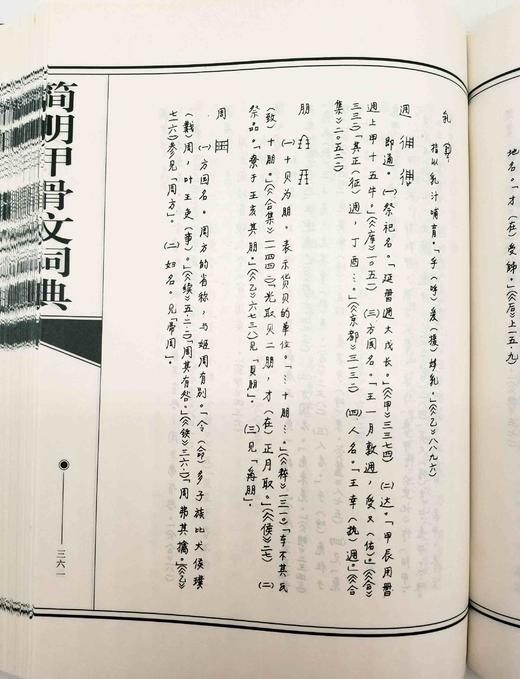 地名。「才（在）受　。」（《后》上一五·九）
乳
指以乳汁哺育。「乎（呼）爰（援）　乳。」（《乙》八八九六）
即通。（一）祭祀名。「延　大　。」（《甲》三三七四）（二）达。「甲辰用
上甲十五牛。」（《库》一〇五二）（三）方国名。「王一月敦　，受又（佑）。」（《合
三三二）「其正（征）　，丁酉…。」（《京都》三一三二）（四）人名。「王　（执）　。」（《合
集》二〇五二二）
朋
（一）十贝为朋。表示货贝的单位。「…十朋…。」（《粹》一三一）「　不其氏
（致）十朋。」（《合集》一一四　）「光取贝二朋，才（在）正月取。」（《侯》二七）（二）
祭品。「寮于王亥其朋。」（《乙》六七三八）见「贝朋」。（三）见「　朋」。
周
（一）方国名。周方的省称，与姬周有别。「令（命）多子族比犬侯璞
（戡）周，叶王史（事）。」（《续》五·二·二）「周其有咎。」（《铁》三六·一）「周弗其擒。」（《乙》
七一六一）参见「周方」。（二）妇名。见「帚周」。
简明甲骨文词典
三六一